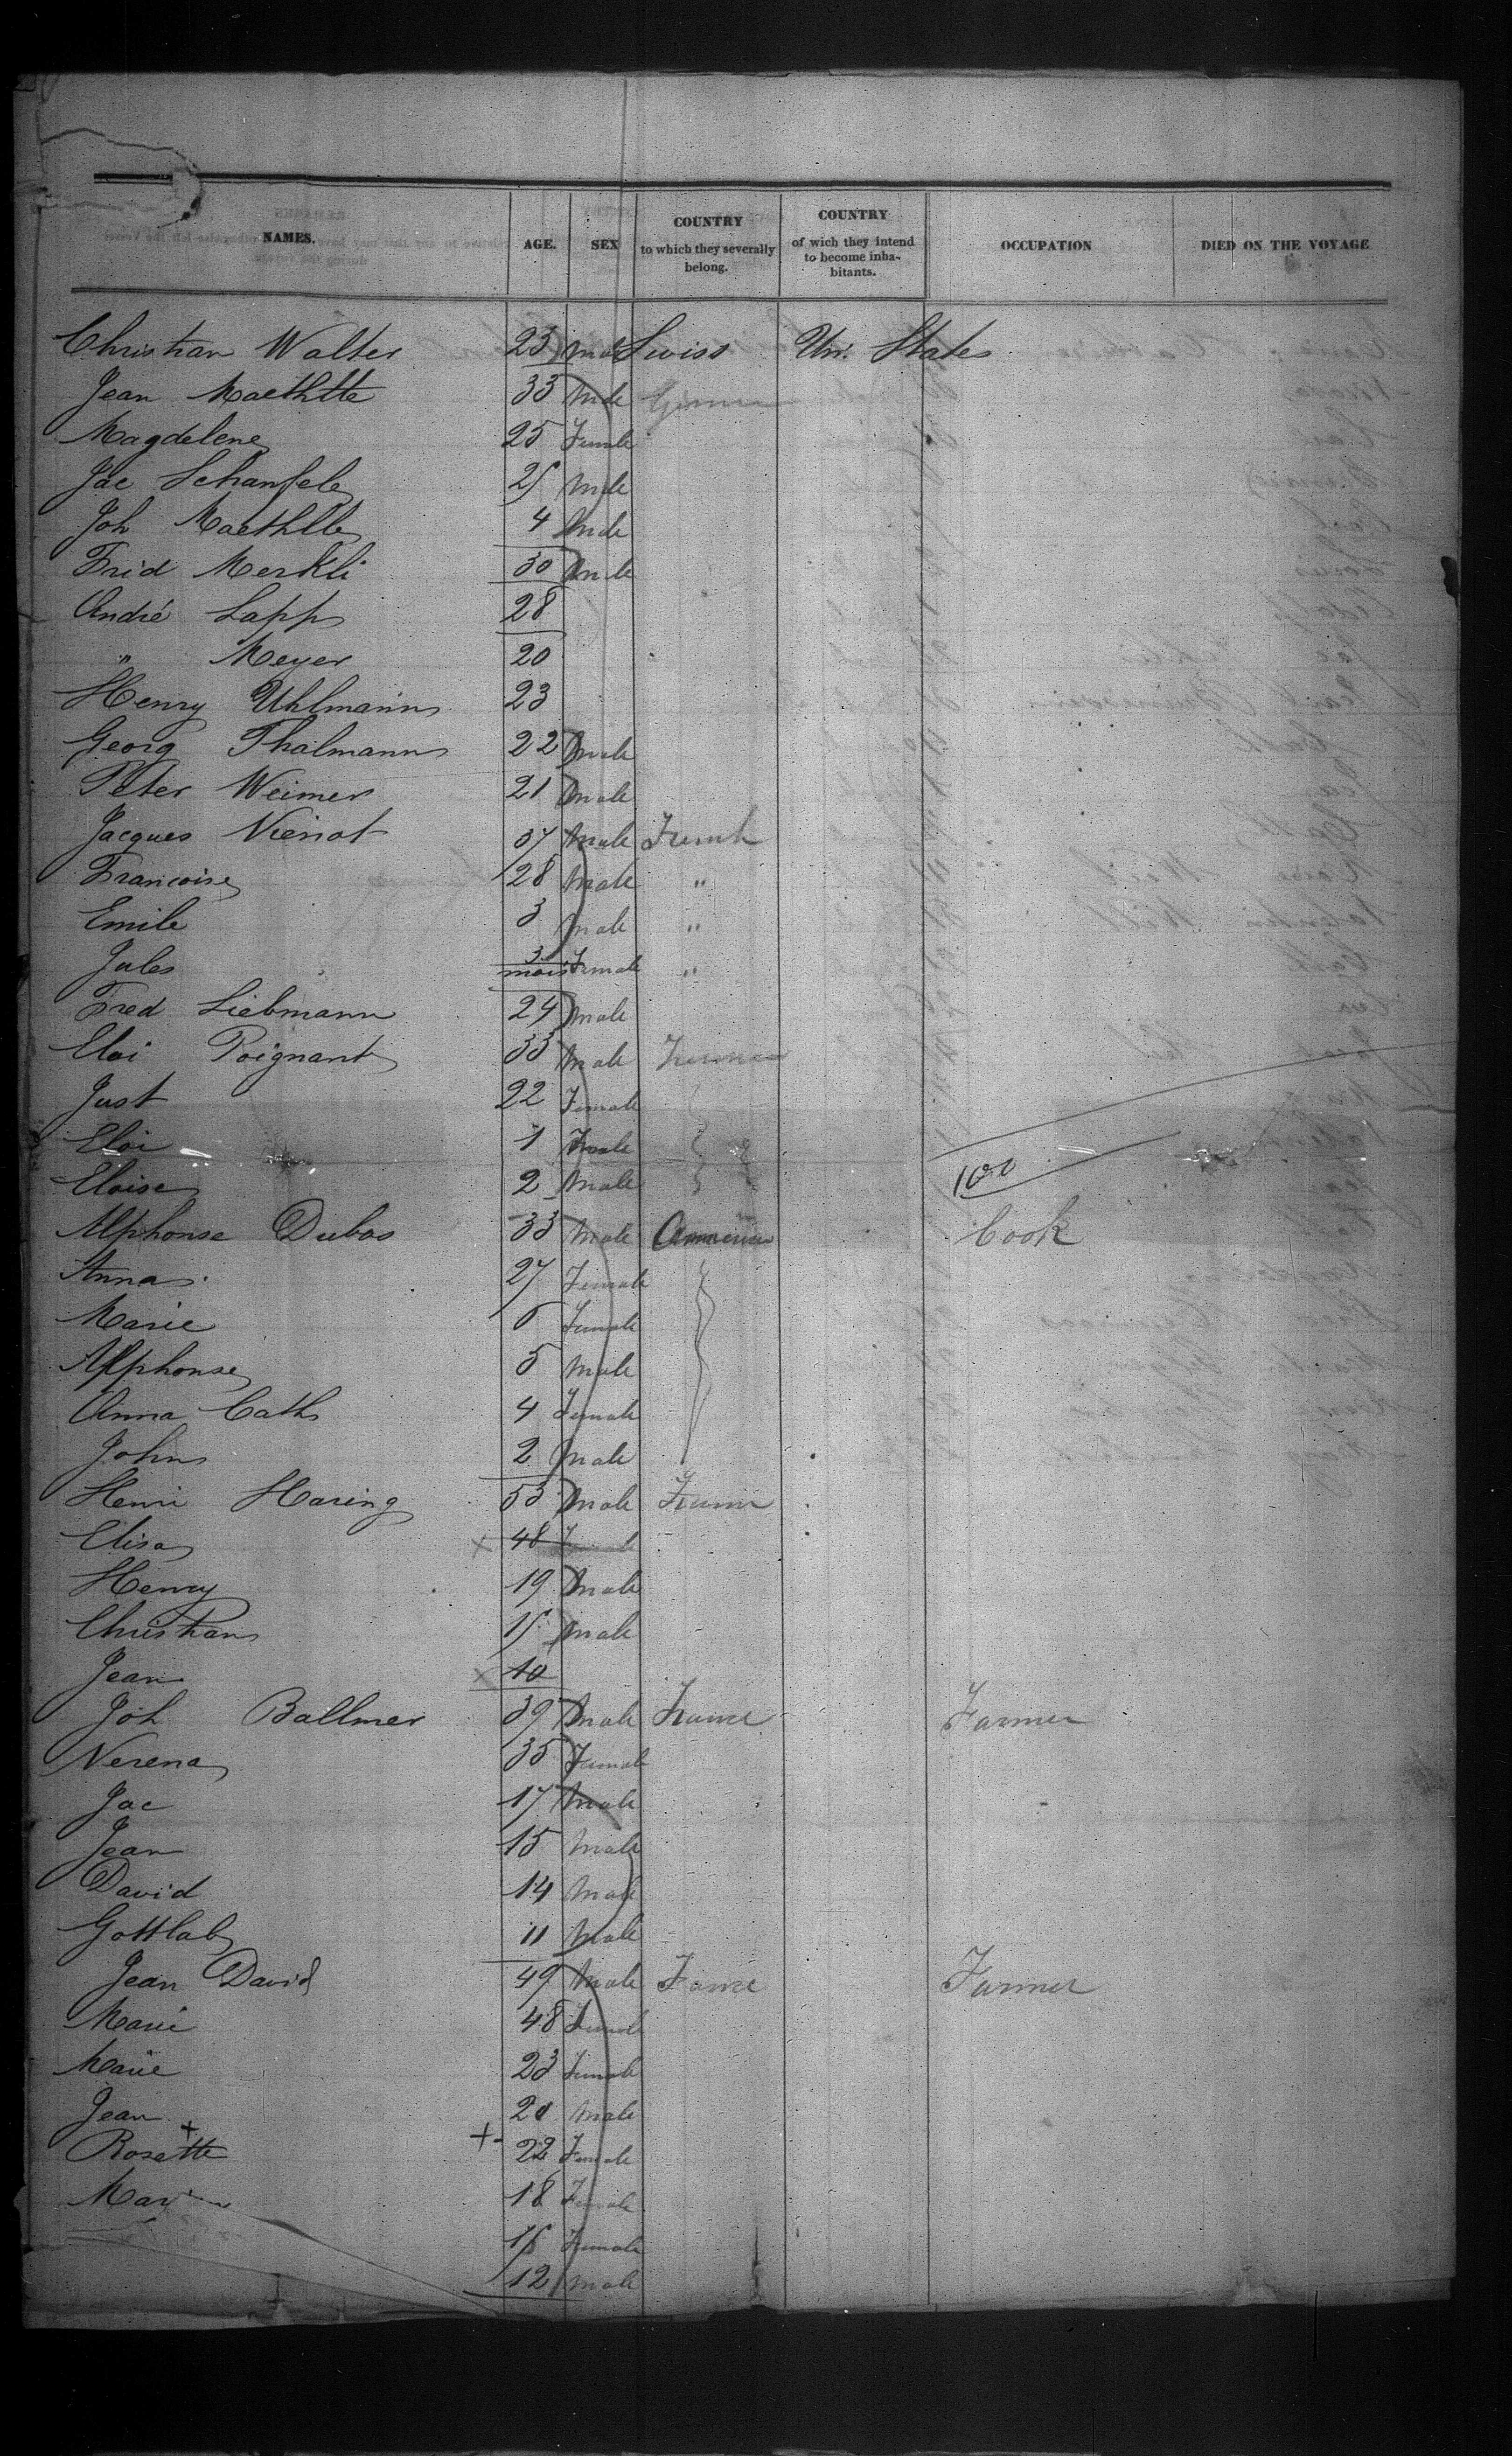 NAMES. AGE. SEX COUNTRY to which they severally belong. COUNTRY of wich they intend to become inhabitants. OCCUPATION DIED ON THE VOYAGE
Christian Walter 23 Male Swiss Un. States
Jean Maethlte 33 Male
Magdelene 25 Female
Jac Schanfele 25 Male
Joh Maethlle 4 Male
Frid Merkli 30 Male
André Lapp 28
" Meyer 20
Henry Uhlmann 23
Georg Thalmann 22 Male
Peter Weimer 21 Male
Jacques Vienot 37 Male French
Francoise 28 Male "
Emile 3 Male "
Jules 3 mois Female "
Fred Liebmann 24 Male
Eloi Poignant 33 Male
Just 22 Female
Eloi 7
Eloise 2 Male
100
Alphonse Dubos 33 Male American Cook
Anna 27 Female
Marie 6 Female
Alphonse 5 Male
Anna Cath 4 Female
John 2 Male
Henri Haring 53 Male
Elisa 48
Henry 19 Male
Christian 15 Male
Jean 10
Joh Ballmer 39 Male France Farmer
Verena 35 Female
Jac 17 Male
Jean 15 Male
David 14 Male
Gottlab 11 Male
Jean David 49 Male France Farmer
Marie 48 Female
Marie 23 Female
Jean 20 Male
Rosette 22 Female
18 Female
16 Female
12 Male